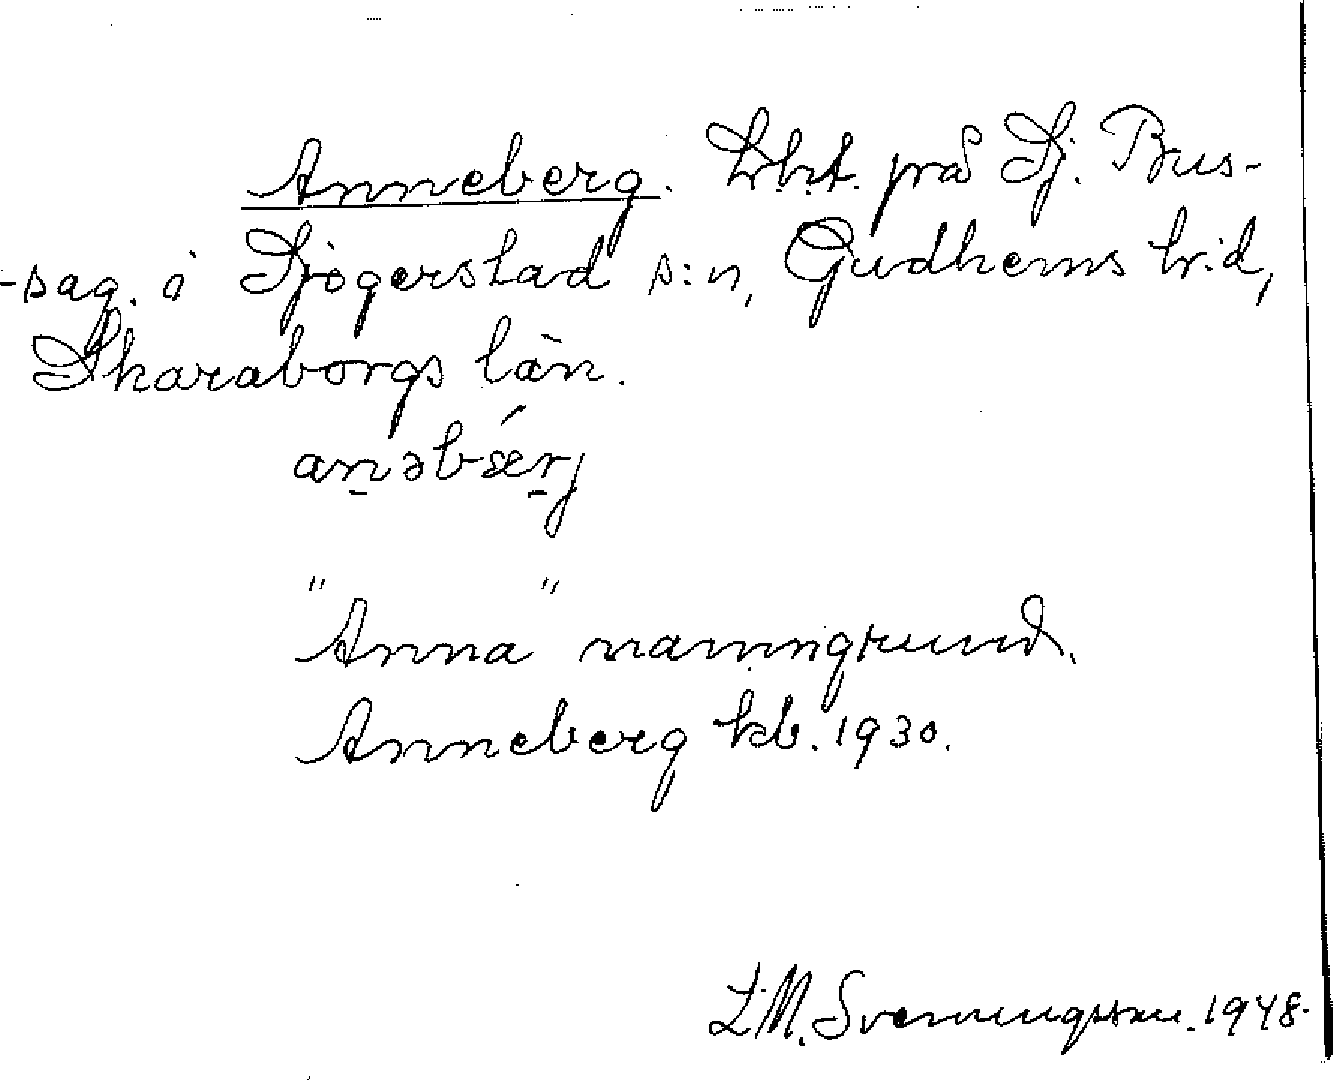 Anneberg. Lht. på Sj. Bus-
-sag. i Sjögerstad s:n, Gudhems hr:d,
Skaraborgs län.
anəbærj
"Anna" namngrund.
Anneberg kb. 1930.
L.M. Svenningsson. 1948.